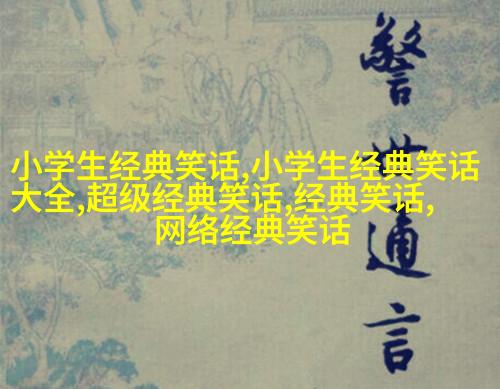 小学生经典笑话,小学生经典笑话
大全,超级经典笑话,经典笑话,
网络经典笑话
警世通言